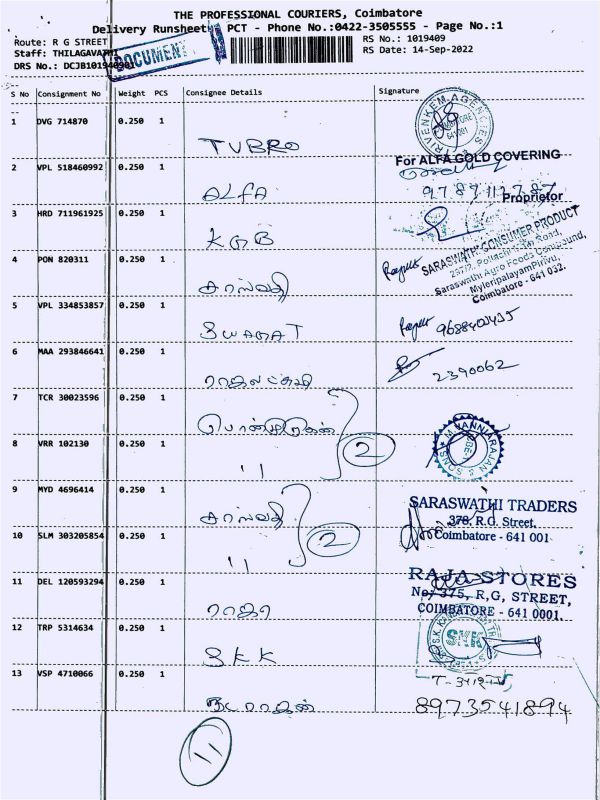 THE PROFESSIONAL COURIERS, Coimbatore
Delivery Runsheet PCT - Phone No.:0422-3505555 - Page No.:1
Route: R G STREET
RS No.: 1019409
Staff: THILAGAVATHI
RS Date: 14-Sep-2022
DRS No.: DCJB101940901
DOCUMENT
S No Consignment No Weight PCS Consignee Details Signature
1 DVG 714870 0.250 1
TUBRO
TRIVENKEM AGENCIES
COIMBATORE
641 001
2 VPL 518460992 0.250 1
For ALFA GOLD COVERING
ALFA
9787117787
Proprietor
3 HRD 711961925 0.250 1
KGB
SARASWATHI CONSUMER PRODUCT
Saraswathi Agro Foods Compound,
Myleripalayam Pirivu,
Coimbatore - 641 032.
4 PON 820311 0.250 1
சரஸ்வதி
5 VPL 334853857 0.250 1
SWAGAT
6 MAA 293846641 0.250 1
ராஜலட்சுமி
2390062
7 TCR 30023596 0.250 1
8 VRR 102130 0.250 1
"
2
M. VANNIARAJAN & SONS
9 MYD 4696414 0.250 1
சரஸ்வதி
SARASWATHI TRADERS
378, R.G. Street,
Coimbatore - 641 001
10 SLM 303205854 0.250 1
"
2
11 DEL 120593294 0.250 1
ராஜா
RAJA STORES
No: 375, R,G, STREET,
COIMBATORE - 641 0001.
12 TRP 5314634 0.250 1
SKK
SKK
13 VSP 4710066 0.250 1
நடராஜன்
8973541894
11